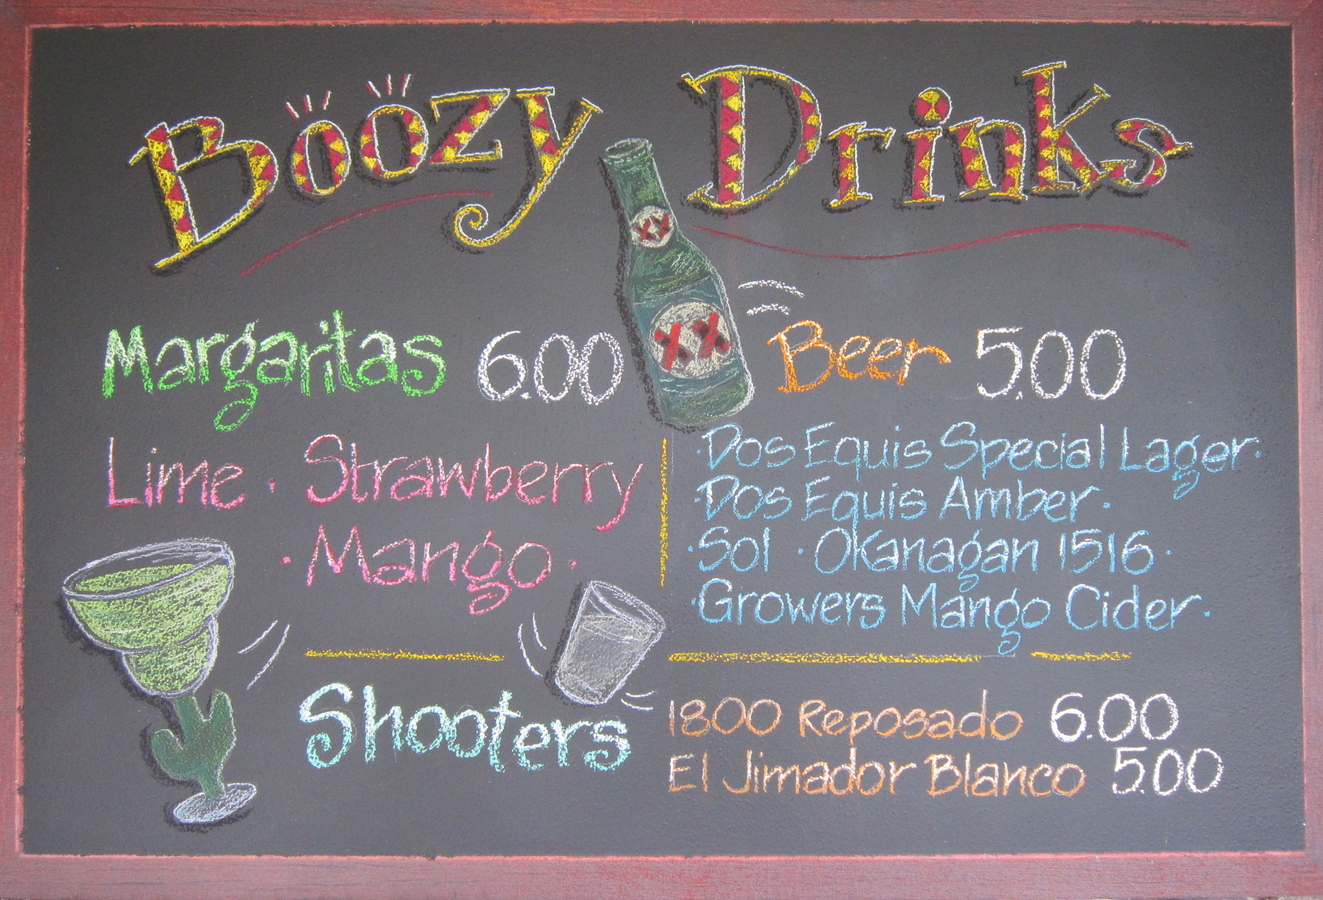 Boozy Drinks
XX
XX
Margaritas 6.00
Lime · Strawberry
· Mango ·
Beer 5.00
· Dos Equis Special Lager ·
· Dos Equis Amber ·
· Sol · Okanagan 1516 ·
· Growers Mango Cider ·
Shooters
1800 Reposado 6.00
El Jimador Blanco 5.00